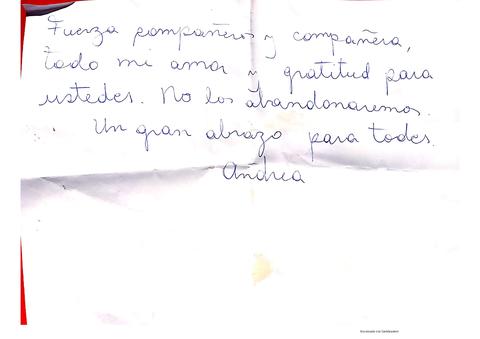 Fuerza compañeros y compañera,
todo mi amor y gratitud para
ustedes. No los abandonaremos.
Un gran abrazo para todes.
Andrea